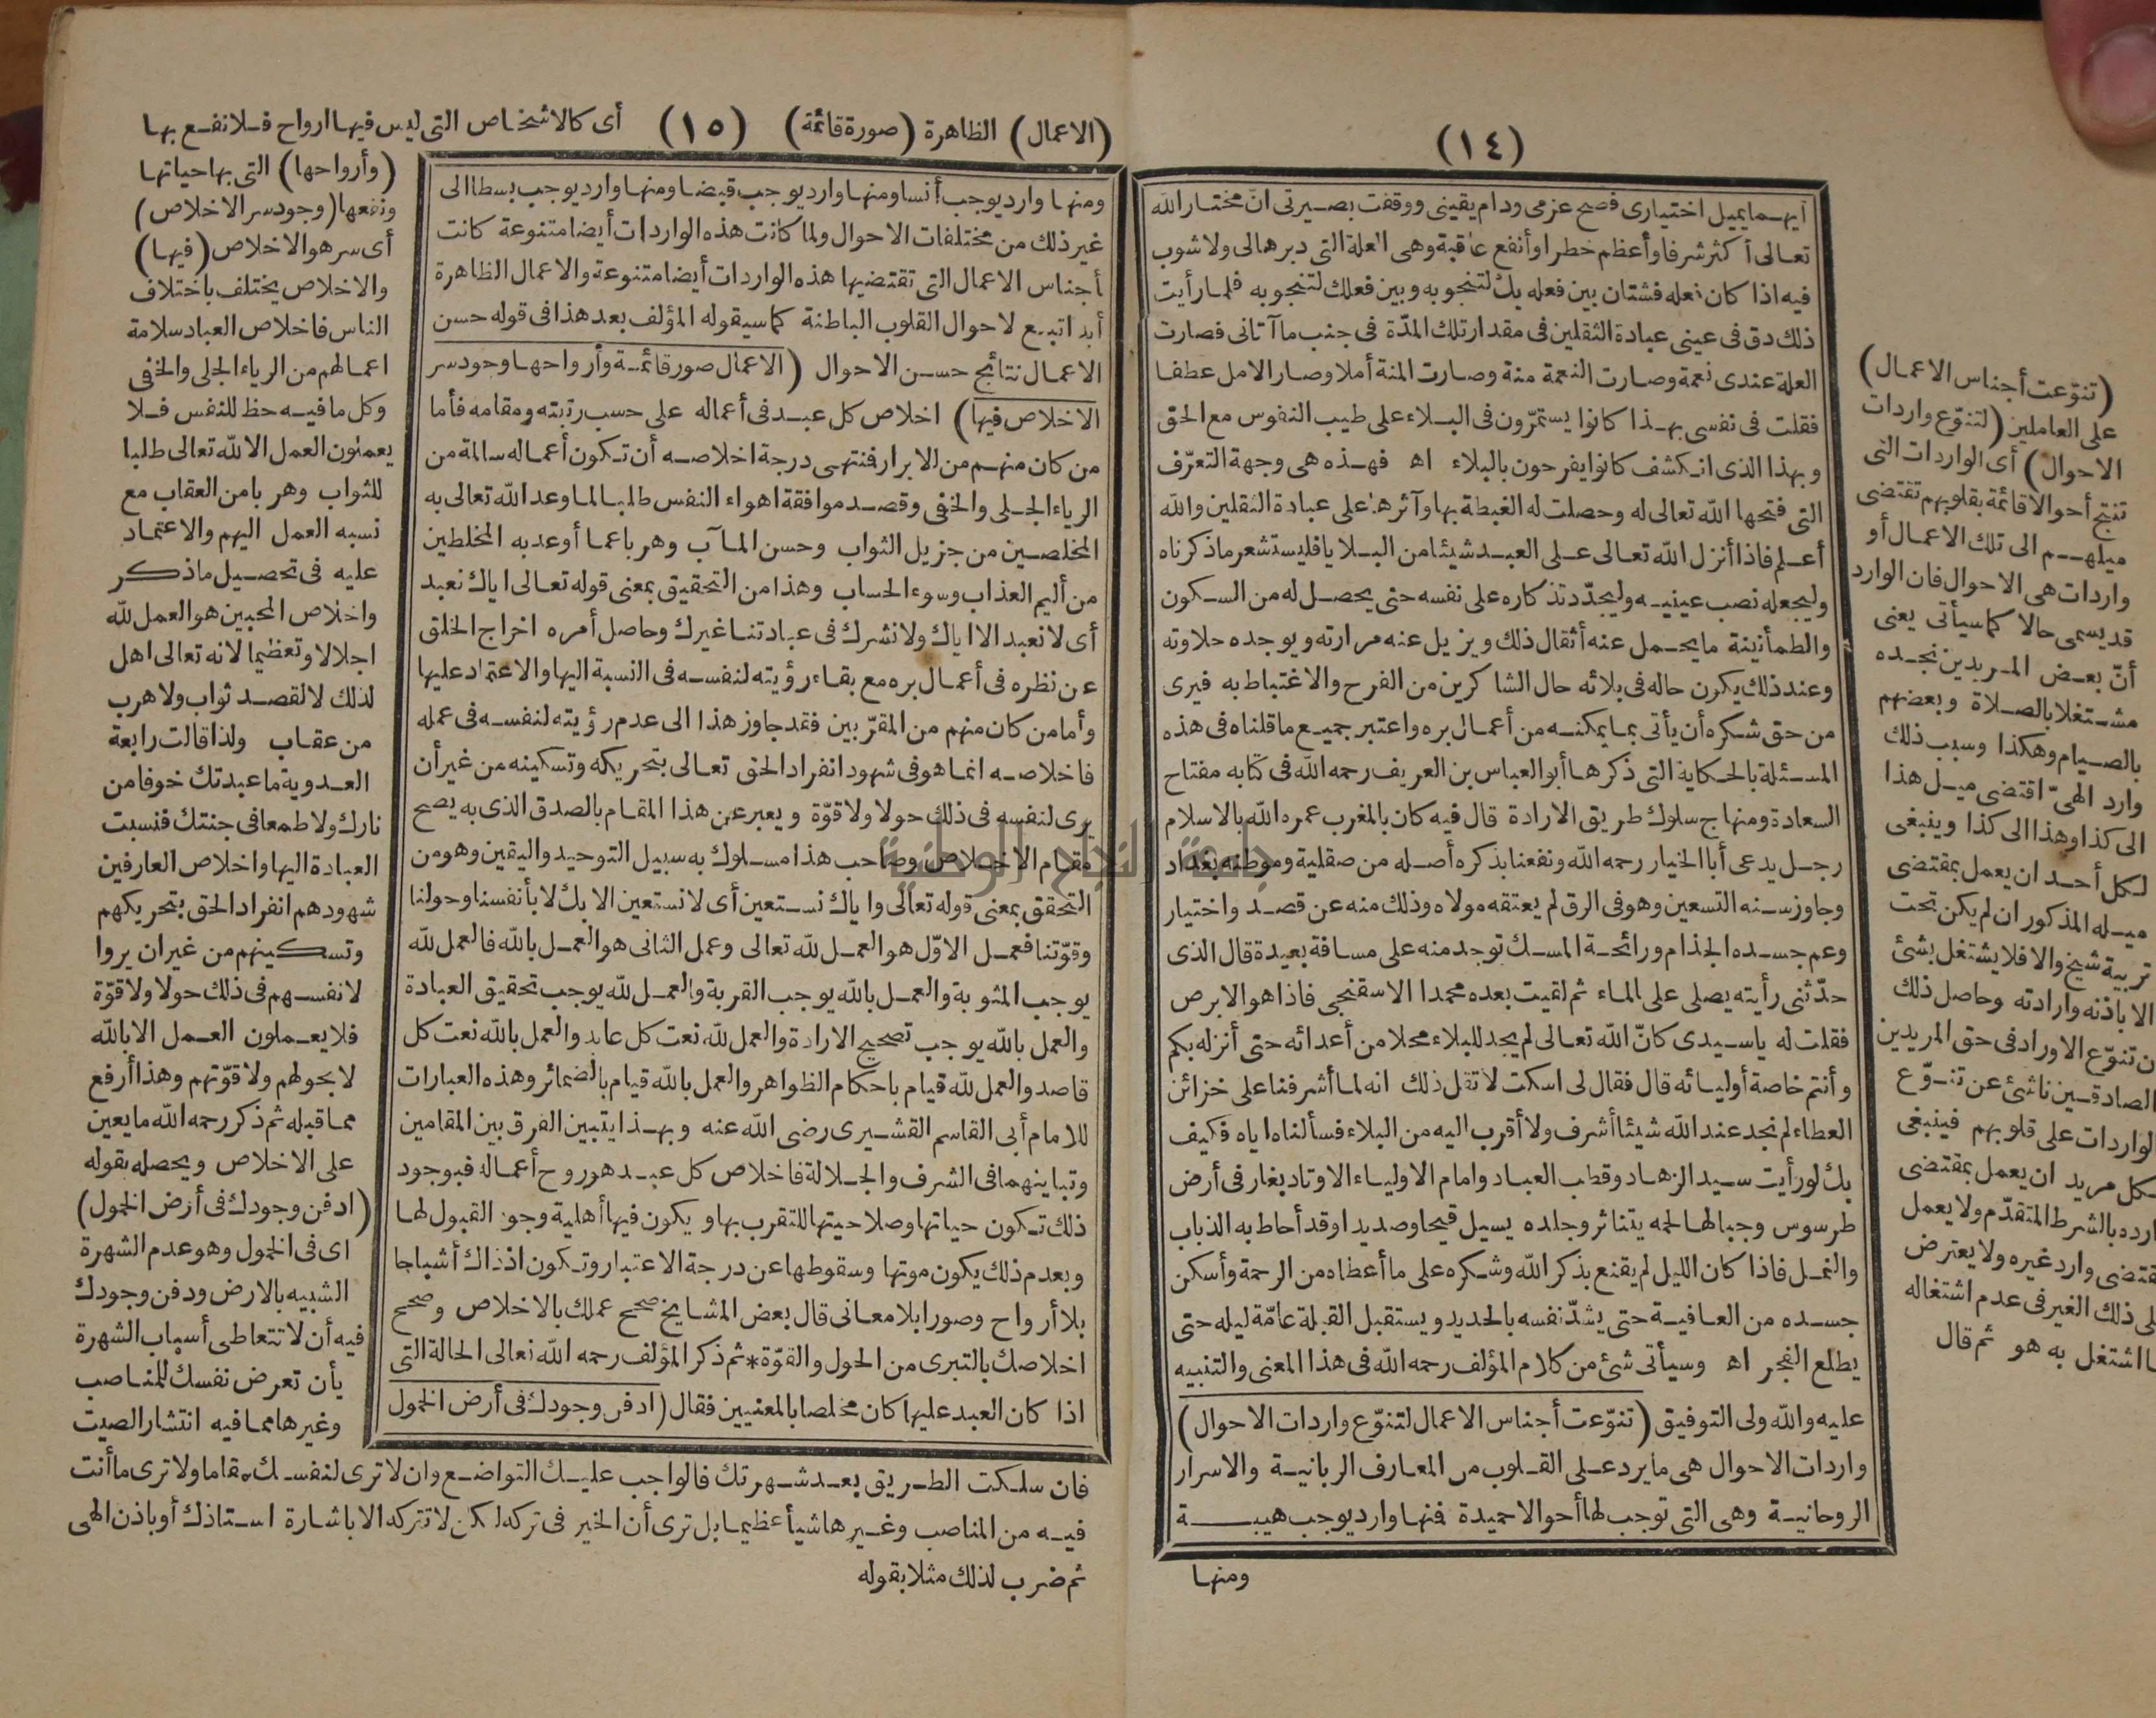 (١٤)
أيهما يميل اختيارى فصح عزمى ودام يقينى ووقفت بصيرتى انّ مختار الله
تعالى أكثر شرفا وأعظم خطرا وأنفع عاقبة وهى العلة التى دبرها لى ولا شوب
فيه اذا كان فعله فشتان بين فعله بك لتنجو به وبين فعلك لتنجو به فلما رأيت
ذلك دق فى عينى عبادة الثقلين فى مقدار تلك المدّة فى جنب ما آتانى فصارت
العلة عندى نعمة وصارت النعمة منة وصارت المنة أملا وصار الامل عطفا
فقلت فى نفسى بهذا كانوا يستمرّون فى البلاء على طيب النفوس مع الحق
وبهذا الذى انكشف كانوا يفرحون بالبلاء اه فهذه هى وجهة التعرّف
التى فتحها الله تعالى له وحصلت له الغبطة بها وآثرها على عبادة الثقلين والله
أعلم فاذا أنزل الله تعالى على العبد شيئا من البلايا فليستشعر ما ذكرناه
وليجعله نصب عينيه وليجدّد تذكاره على نفسه حتى يحصل له من السكون
والطمأنينة ما يحمل عنه أثقال ذلك ويزيل عنه مرارته ويوجده حلاوته
وعند ذلك يكون حاله فى بلائه حال الشاكرين من الفرح والاغتباط به فيرى
من حق شكره أن يأتى بما يمكنه من أعمال بره واعتبر جميع ما قلناه فى هذه
المسئلة بالحكاية التى ذكرها أبو العباس بن العريف رحمه الله فى كتابه مفتاح
السعادة ومنهاج سلوك طريق الارادة قال فيه كان بالمغرب عمره الله بالاسلام
رجل يدعى أبا الخيار رحمه الله ونفعنا بذكره أصله من صقلية وموطنه بغداد
وجاوز سنه التسعين وهو فى الرق لم يعتقه مولاه وذلك منه عن قصد واختيار
وعم جسده الجذام ورائحة المسك توجد منه على مسافة بعيدة قال الذى
حدّثنى رأيته يصلى على الماء ثم لقيت بعده محمدا الاسفنجى فاذا هو الابرص
فقلت له ياسيدى كانّ الله تعالى لم يجد للبلاء محلا من أعدائه حتى أنزله بكم
وأنتم خاصة أوليائه قال فقال لى اسكت لا تقل ذلك انه لما أشرفنا على خزائن
العطاء لم نجد عند الله شيئا أشرف ولا أقرب اليه من البلاء فسألناه اياه فكيف
بك لو رأيت سيد الزهاد وقطب العباد وامام الاولياء الاوتاد بغار فى أرض
طرسوس وجبالها لحمه يتناثر وجلده يسيل قيحا وصديدا وقد أحاط به الذباب
والنمل فاذا كان الليل لم يقنع بذكر الله وشكره على ما أعطاه من الرحمة وأسكن
جسده من العافية حتى يشدّ نفسه بالحديد ويستقبل القبلة عامّة ليله حتى
يطلع الفجر اه وسيأتى شئ من كلام المؤلف رحمه الله فى هذا المعنى والتنبيه
عليه والله ولى التوفيق (تنوّعت أجناس الاعمال لتنوّع واردات الاحوال)
واردات الاحوال هى ما يرد على القلوب من المعارف الربانية والاسرار
الروحانية وهى التى توجب لها أحوالا حميدة فمنها وارد يوجب هيبة
ومنها
(تنوّعت أجناس الاعمال)
على العاملين (لتنوّع واردات
الاحوال) أى الواردات التى
تنتج أحوالا قائمة بقلوبهم تقتضى
ميلهم الى تلك الاعمال أو
واردات هى الاحوال فان الوارد
قد يسمى حالا كما سيأتى يعنى
أنّ بعض المريدين نجده
مشتغلا بالصلاة وبعضهم
بالصيام وهكذا وسبب ذلك
وارد الهىّ اقتضى ميل هذا
الى كذا وهذا الى كذا وينبغى
لكل أحد ان يعمل بمقتضى
ميله المذكور ان لم يكن تحت
تربية شيخ والا فلا يشتغل بشئ
الا باذنه وارادته وحاصل ذلك
ن تنوّع الاوراد فى حق المريدين
الصادقين ناشئ عن تنوّع
لواردات على قلوبهم فينبغى
كل مريد ان يعمل بمقتضى
ارده بالشرط المتقدّم ولا يعمل
قتضى وارد غيره ولا يعترض
لى ذلك الغير فى عدم اشتغاله
ا اشتغل به هو ثم قال
(الاعمال) الظاهرة (صورة قائمة) (١٥) أى كالاشخاص التى ليس فيها ارواح فلا نفع بها
ومنها وارد يوجب أنسا ومنها وارد يوجب قبضا ومنها وارد يوجب بسطا الى
غير ذلك من مختلفات الاحوال ولما كانت هذه الواردات أيضا متنوعة كانت
أجناس الاعمال التى تقتضيها هذه الواردات أيضا متنوعة والاعمال الظاهرة
أبدا تبع لاحوال القلوب الباطنة كما سيقوله المؤلف بعد هذا فى قوله حسن
الاعمال نتائج حسن الاحوال (الاعمال صور قائمة وأرواحها وجود سر
الاخلاص فيها) اخلاص كل عبد فى أعماله على حسب رتبته ومقامه فأما
من كان منهم من الابرار فمنتهى درجة اخلاصه أن تكون أعماله سالمة من
الرياء الجلى والخفى وقصد موافقة اهواء النفس طلبا لما وعد الله تعالى به
المخلصين من جزيل الثواب وحسن المآب وهربا عما أوعد به المخلطين
من أليم العذاب وسوء الحساب وهذا من التحقيق بمعنى قوله تعالى اياك نعبد
أى لا نعبد الا اياك ولا نشرك فى عبادتنا غيرك وحاصل أمره اخراج الخلق
عن نظره فى أعمال بره مع بقاء رؤيته لنفسه فى النسبة اليها والاعتماد عليها
وأما من كان منهم من المقرّبين فقد جاوز هذا الى عدم رؤيته لنفسه فى عمله
فاخلاصه انما هو فى شهود انفراد الحق تعالى بتحريكه وتسكينه من غير أن
يرى لنفسه فى ذلك حولا ولا قوّة ويعبر عن هذا المقام بالصدق الذى به يصح
مقام الاخلاص وصاحب هذا مسلوك به سبيل التوحيد واليقين وهو من
التحقق بمعنى قوله تعالى واياك نستعين أى لا نستعين الا بك لا بأنفسنا وحولنا
وقوّتنا فعمل الاوّل هو العمل لله تعالى وعمل الثانى هو العمل بالله فالعمل لله
يوجب المثوبة والعمل بالله يوجب القربة والعمل لله يوجب تحقيق العبادة
والعمل بالله يوجب تصحيح الارادة والعمل لله نعت كل عابد والعمل بالله نعت كل
قاصد والعمل لله قيام باحكام الظواهر والعمل بالله قيام بالضمائر وهذه العبارات
للامام أبى القاسم القشيرى رضى الله عنه وبهذا يتبين الفرق بين المقامين
وتباينهما فى الشرف والجلالة فاخلاص كل عبد هو روح أعماله فبوجود
ذلك تكون حياتها وصلاحيتها للتقرب بها ويكون فيها أهلية وجود القبول لها
وبعدم ذلك يكون موتها وسقوطها عن درجة الاعتبار وتكون اذ ذاك أشباحا
بلا أرواح وصورا بلا معانى قال بعض المشايخ صحح عملك بالاخلاص وصحح
اخلاصك بالتبرى من الحول والقوّة * ثم ذكر المؤلف رحمه الله تعالى الحالة التى
اذا كان العبد عليها كان مخلصا بالمعنيين فقال (ادفن وجودك فى أرض الخمول
(وأرواحها) التى بها حياتها
ونفعها (وجود سر الاخلاص)
أى سر هو الاخلاص (فيها)
والاخلاص يختلف باختلاف
الناس فاخلاص العباد سلامة
اعمالهم من الرياء الجلى والخفى
وكل ما فيه حظ للنفس فلا
يعملون العمل الا لله تعالى طلبا
للثواب وهربا من العقاب مع
نسبه العمل اليهم والاعتماد
عليه فى تحصيل ما ذكر
واخلاص المحبين هو العمل لله
اجلالا وتعظيما لانه تعالى اهل
لذلك لا لقصد ثواب ولا هرب
من عقاب ولذا قالت رابعة
العدوية ما عبدتك خوفا من
نارك ولا طمعا فى جنتك فنسبت
العبادة اليها واخلاص العارفين
شهودهم انفراد الحق بتحريكهم
وتسكينهم من غير ان يروا
لانفسهم فى ذلك حولا ولا قوّة
فلا يعملون العمل الا بالله
لا بحولهم ولا قوّتهم وهذا أرفع
مما قبله ثم ذكر رحمه الله ما يعين
على الاخلاص ويحصله بقوله
(ادفن وجودك فى أرض الخمول)
اى فى الخمول وهو عدم الشهرة
الشبيه بالارض ودفن وجودك
فيه أن لا تتعاطى أسباب الشهرة
بأن تعرض نفسك للمناصب
وغيرها مما فيه انتشار الصيت
فان سلكت الطريق بعد شهرتك فالواجب عليك التواضع وان لا ترى لنفسك مقاما ولا ترى ما أنت
فيه من المناصب وغيرها شيأ عظيما بل ترى أن الخير فى تركه لكن لا تتركه الا باشارة استاذك أو باذن الهى
ثم ضرب لذلك مثلا بقوله
جامعة النجاح الوطنية